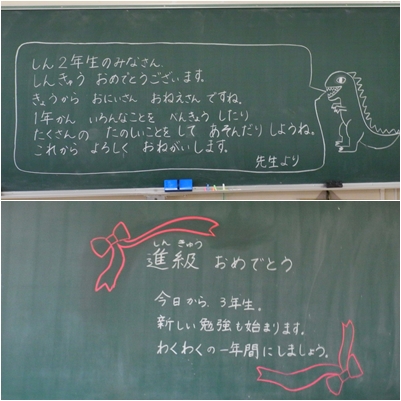 しん2年生のみなさん、
しんきゅう おめでとうございます。
きょうから おにいさん おねえさん ですね。
1年かん いろんなことを べんきょう したり
たくさんの たのしいことを して あそんだり しようね。
これから よろしく おねがいします。
先生より
しん きゅう
進級 おめでとう
今日から、3年生。
新しい勉強も始まります。
わくわくの一年間にしましょう。